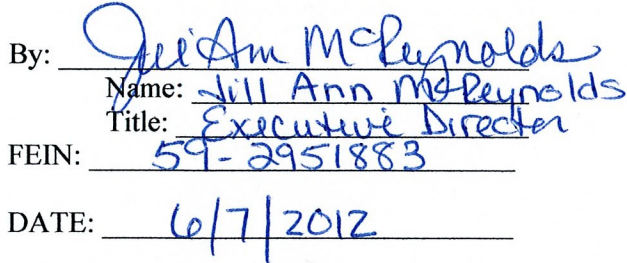 By: Jill Ann McReynolds
Name: Jill Ann McReynolds
Title: Executive Director
FEIN: 59-2951883
DATE: 6/7/2012